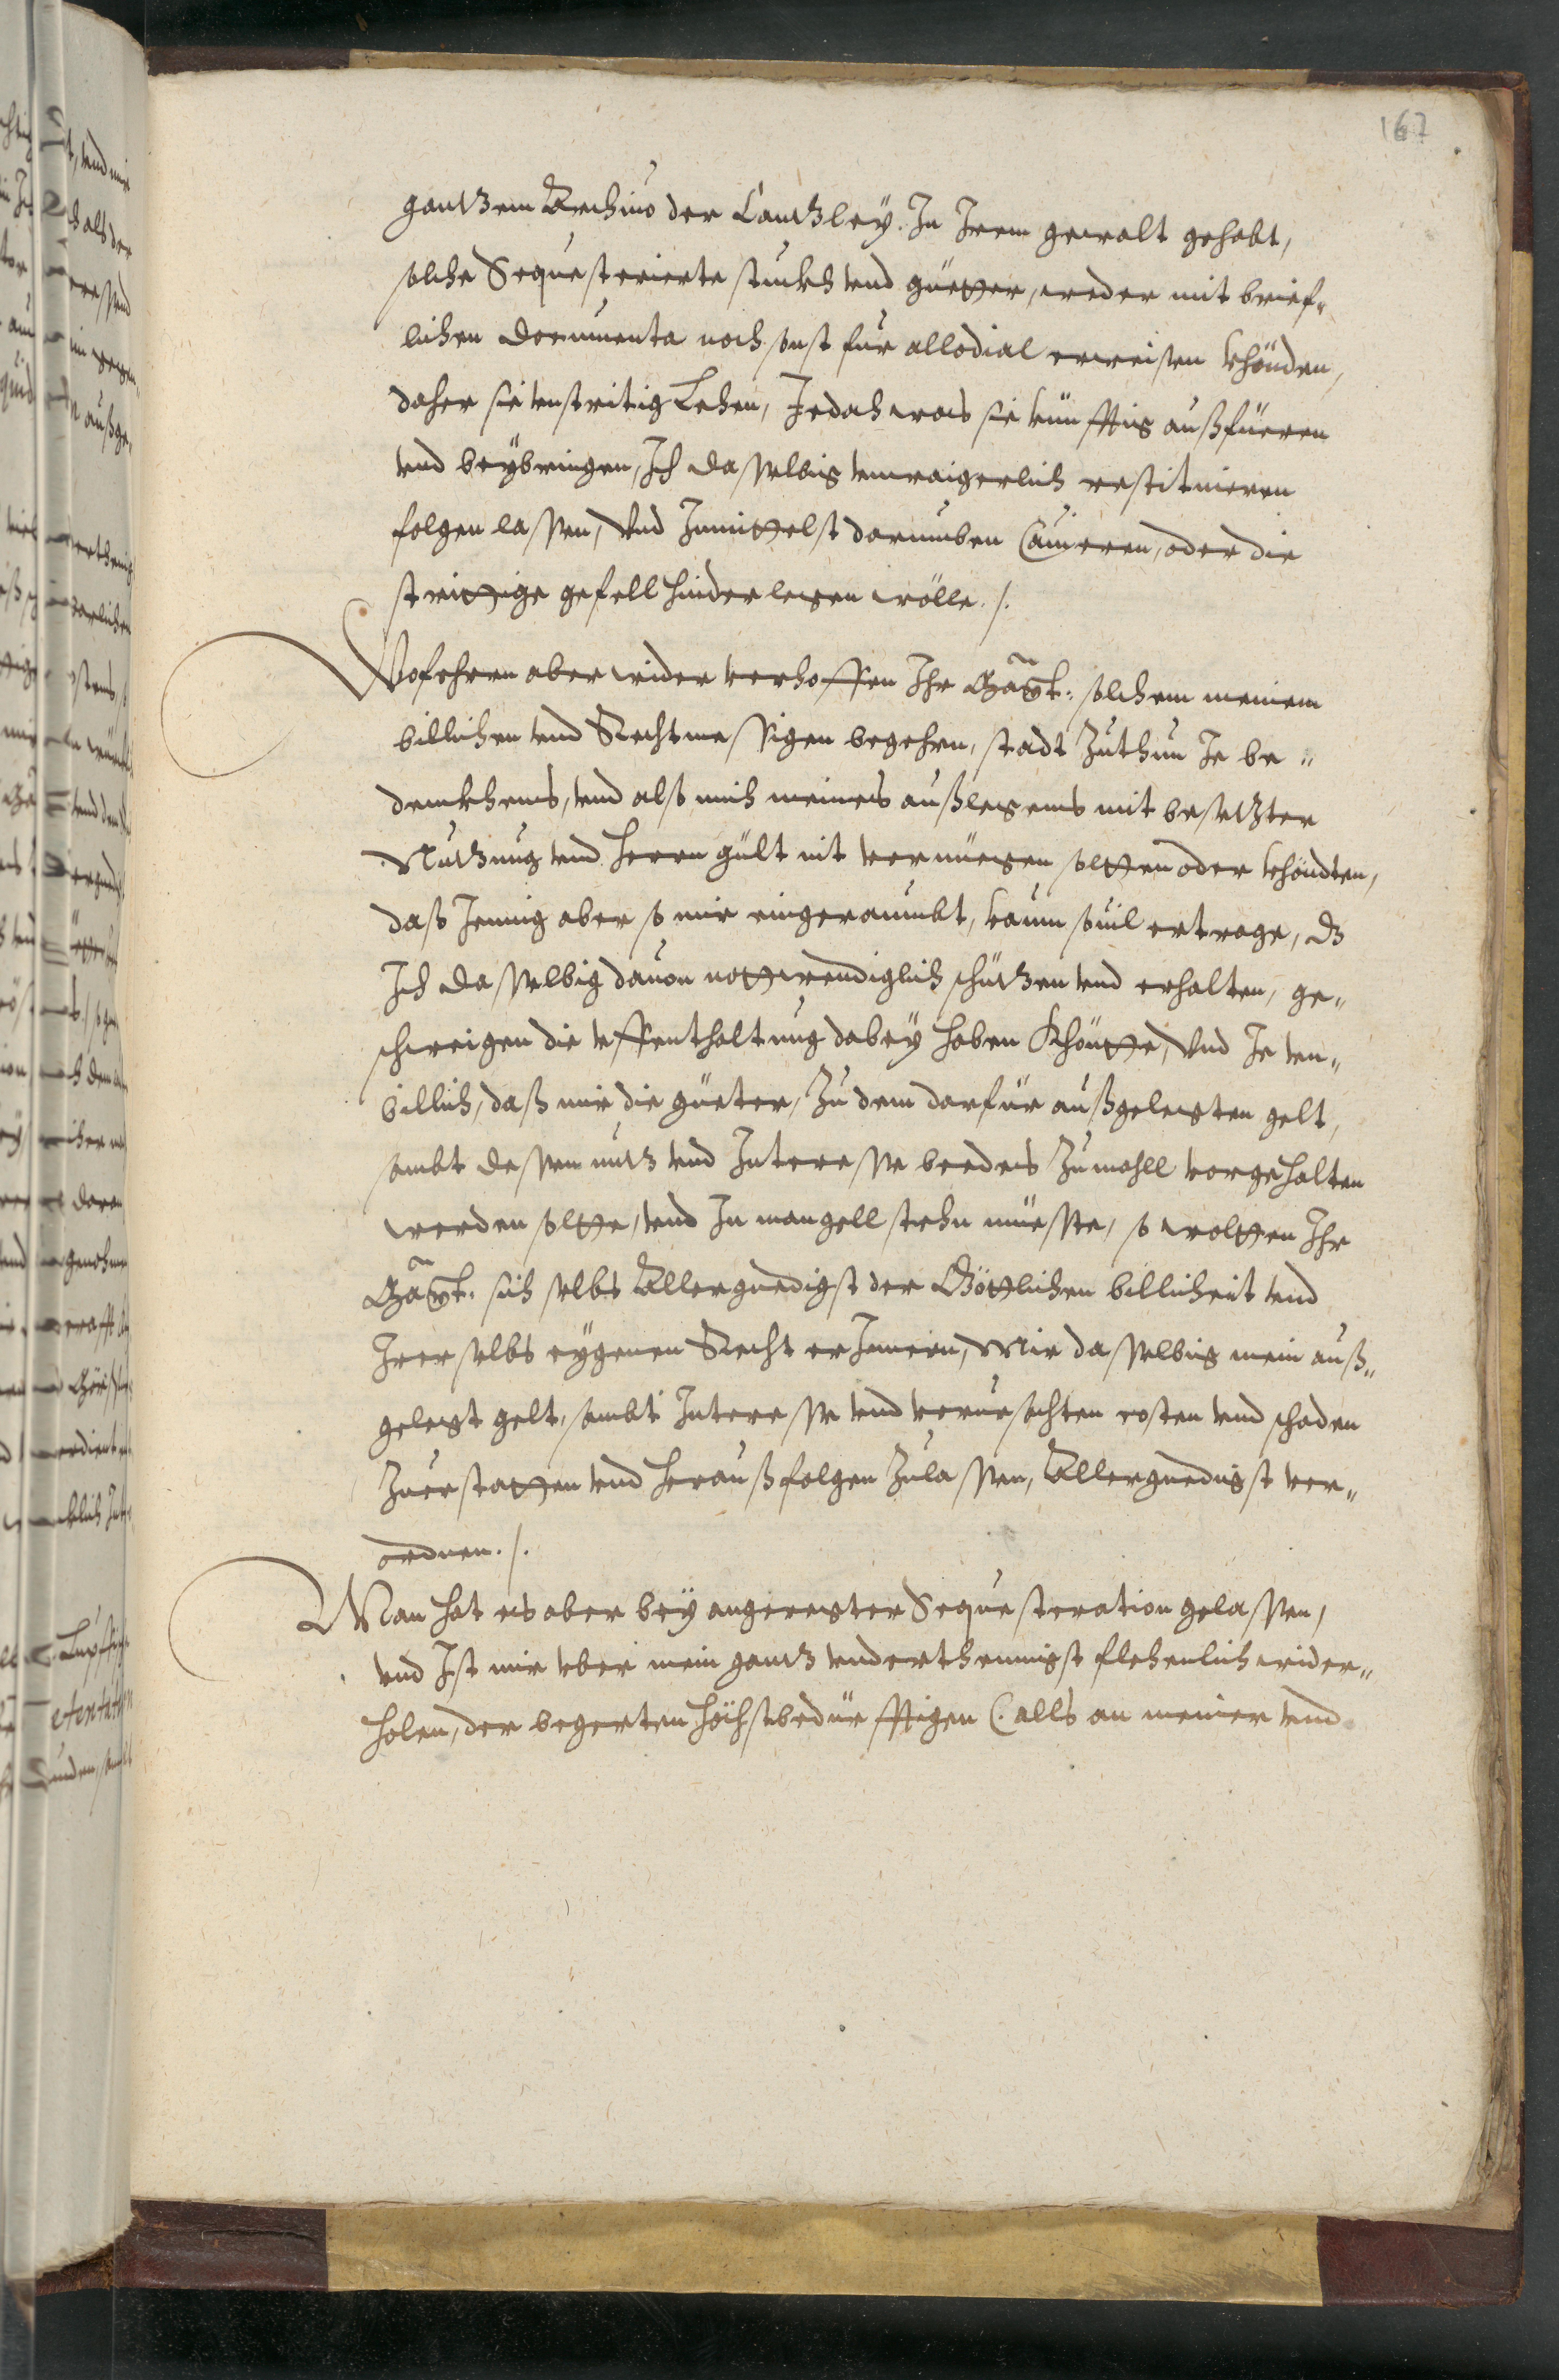 167
gantzem Archiuo der Cantzley. In Irem gewalt gehabt,
solche Sequesterierte stuckh vnd güetter, weder mit brief¬
lichen documenta noch sonst für allodial erweisen khönden,
daher sie vnstritig Lehen, Jedoch was sie künfftig außfüeren
vnd beybringen, Ich dasselbig vnwaigerlich restituieren
folgen lassen, Vnd Inmittelst darumben Cauieren, oder die
strittige gefell hinderlegen wölle. /.
Wofehrrn aber wider verhoffen Ihr Maytt: solchem meinem
billichen vnd Rechtmessigen begehrn, stadt Zuthun Je be¬
denckhens, vnd also mich meines außlegens mit besetzter
Nutzung vnd Herrn gült nit vernüegen solten oder khöndten,
daß Jenig aber so mir eingeraumbt, kaum souil ertrage, dz
Ich dasselbig dauon nottwendiglich schützen vnd erhalten, ge¬
schweigen die vffenthaltung dabey haben Khönte, Vnd Je vn¬
billich, daß mir die güeter, Zu dem darfür außgelegten gelt,
sambt dessen nutz vnd Interesse beedes Zumahll vorgehalten
werden solte, vnd In mangell stehn müesste, so wolten Ihr
Maytt. sich selbs Allergnedigst der Göttlichen billicheit vnd
Irer selbs eygenen Recht erInnern, Mir dasselbig mein auß¬
gelegt gelt, sambt Interesse vnd verursachten costen vnd schaden
Zuerstatten vnd heraußfolgen Zulassen, Allergnedigst ver¬
ordnen. /.
Man hat es aber bey angeregter Sequesteration gelassen,
vnd Ist mir vber mein gantz vnderthennigst flehenlich wider¬
holen, der begerten höchstbedürfftigen (. alls an meiner vnd